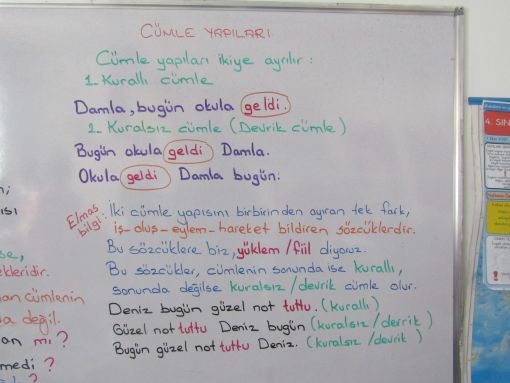 CÜMLE YAPILARI
Cümle yapıları ikiye ayrılır:
1. Kurallı cümle
Damla, bugün okula geldi.
2. Kuralsız cümle (Devrik cümle)
Bugün okula geldi Damla.
Okula geldi Damla bugün.
Elmas bilgi:
İki cümle yapısını birbirinden ayıran tek fark,
iş-oluş-eylem-hareket bildiren sözcüklerdir.
Bu sözcüklere biz, yüklem/fiil diyoruz.
Bu sözcükler, cümlenin sonunda ise kurallı,
sonunda değilse kuralsız/devrik cümle olur.
Deniz bugün güzel not tuttu. (kurallı)
Güzel not tuttu Deniz bugün (kuralsız/devrik)
Bugün güzel not tuttu Deniz. (kuralsız/devrik)
cümlenin
değil.
mı?
medi?
4. SIN